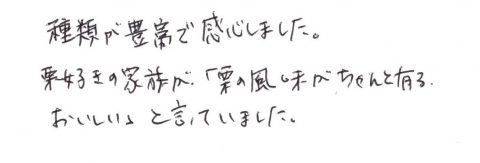 種類が豊富で感心しました。
栗好きの家族が、「栗の風味がちゃんと有る.
おいしい」と言っていました。